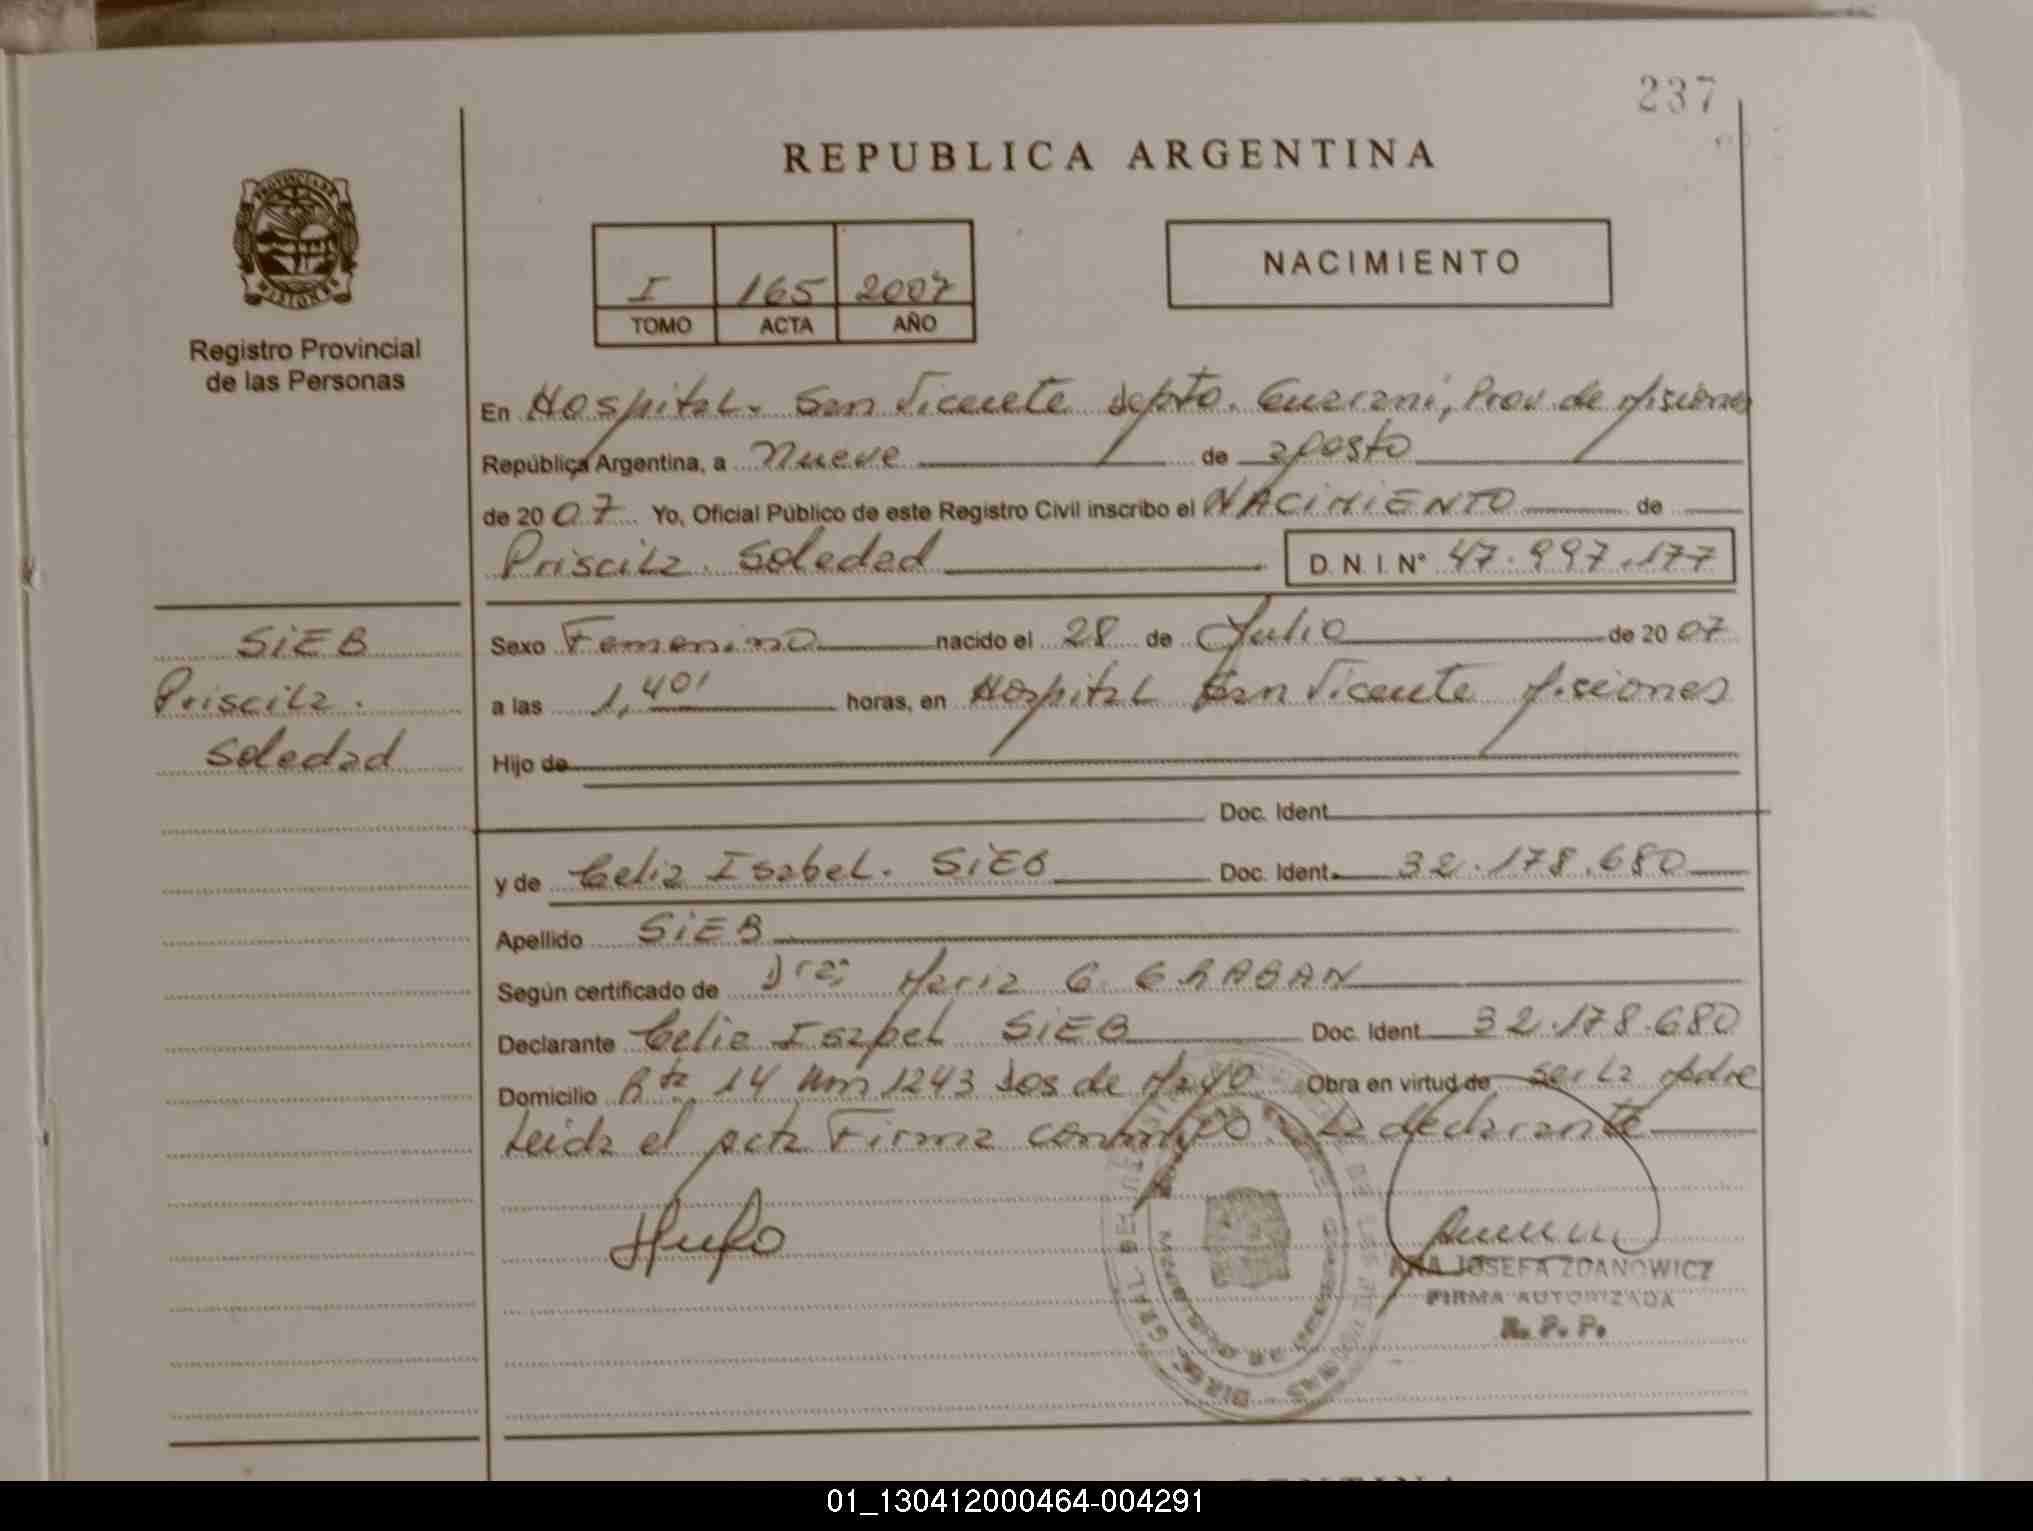 237
REPUBLICA ARGENTINA
PROVINCIA DE
MISIONES
Registro Provincial
de las Personas
I 165 2007
TOMO ACTA AÑO
NACIMIENTO
En Hospital. San Vicente Depto. Guarani, Prov. de Misiones
República Argentina, a Nueve de agosto
de 2007 Yo, Oficial Público de este Registro Civil inscribo el NACIMIENTO de
Priscila Soledad D. N. I. Nº 47.997.177
SiEB
Priscila
Soledad
Sexo Femenino nacido el 28 de Julio de 2007
a las 1,40' horas, en Hospital San Vicente Misiones
Hijo de
Doc. Ident.
y de Celia Isabel. SiEB Doc. Ident. 32.178.680
Apellido SiEB
Según certificado de Dra; Maria G. GRABAN
Declarante Celia Isabel SiEB Doc. Ident. 32.178.680
Domicilio Rta 14 Km 1243 Dos de Mayo Obra en virtud de ser la Madre
Leida el acta Firma conmigo La declarante
ANA JOSEFA ZDANOWICZ
FIRMA AUTORIZADA
R. P. P.
01_130412000464-004291